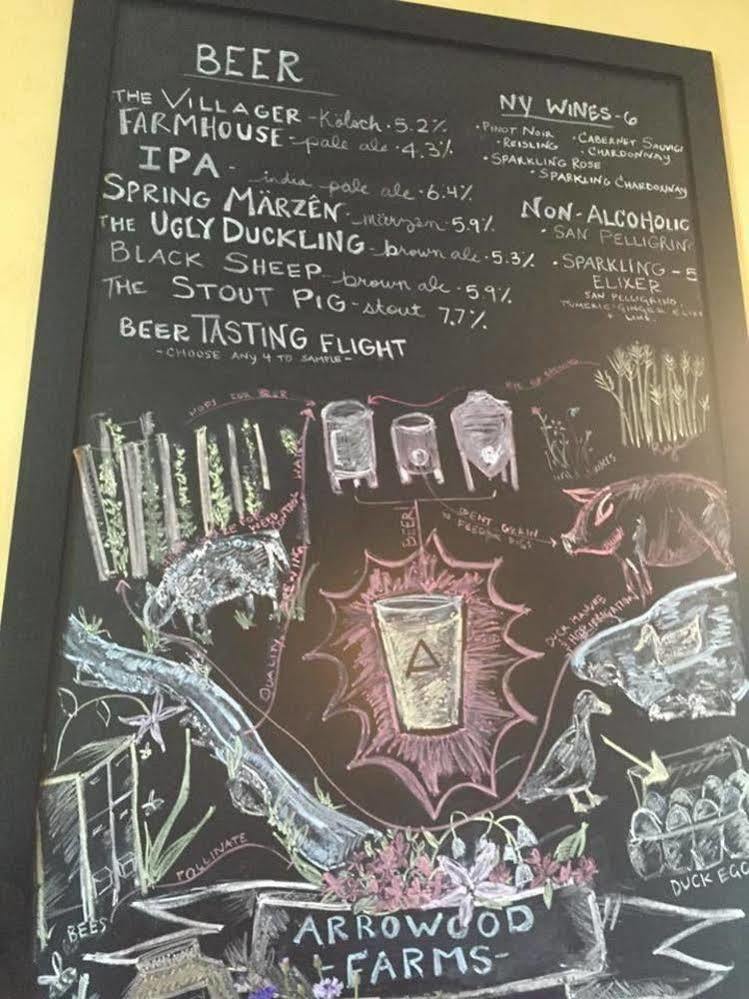 BEER
THE VILLAGER - Kölsch · 5.2%
FARMHOUSE - pale ale · 4.3%
IPA - india pale ale · 6.4%
SPRING MÄRZÊN - märzen · 5.9%
THE UGLY DUCKLING - brown ale · 5.3%
BLACK SHEEP - brown ale · 5.9%
THE STOUT PIG - stout 7.7%
BEER TASTING FLIGHT
- CHOOSE ANY 4 TO SAMPLE -
NY WINES - 6
· PINOT NOIR · CABERNET SAUVIGI
· REISLING · CHARDONNAY
· SPARKLING ROSE
· SPARKLING CHARDONNAY
NON-ALCOHOLIC
· SAN PELLIGRIN
· SPARKLING - 5
ELIXER
SAN PELLIGRINO,
TUMERIC-GINGER ELIX
+ LIME
HOPS FOR BEER
BEER
SPENT GRAIN
FEEDING PIGS
QUALITY BREWING WATER
DUCK MANURE
HOP IRRIGATION
POLLINATE
BEES
DUCK EGG
ARROWOOD
-FARMS-